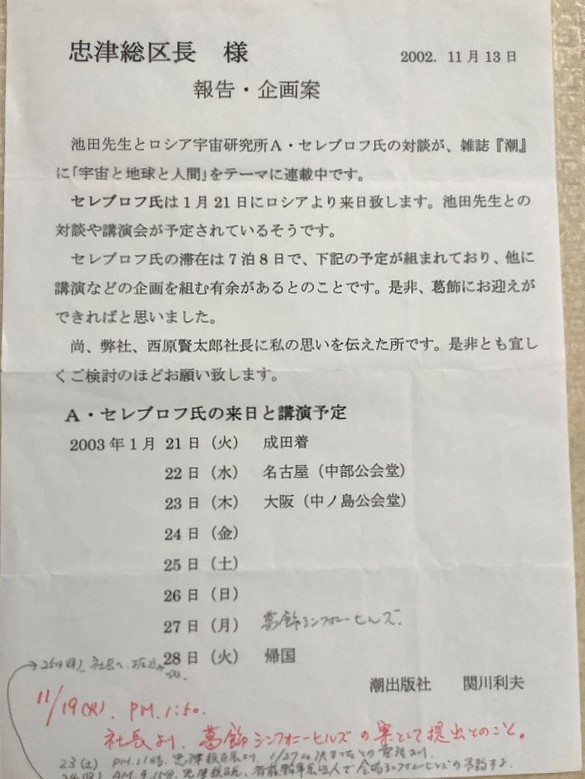 忠津総区長 様
2002. 11月13日
報告・企画案
池田先生とロシア宇宙研究所A・セレブロフ氏の対談が、雑誌『潮』
に「宇宙と地球と人間」をテーマに連載中です。
セレブロフ氏は1月21日にロシアより来日致します。池田先生との
対談や講演会が予定されているそうです。
セレブロフ氏の滞在は7泊8日で、下記の予定が組まれており、他に
講演などの企画を組む有余があるとのことです。是非、葛飾にお迎えが
できればと思いました。
尚、弊社、西原賢太郎社長に私の思いを伝えた所です。是非とも宜し
くご検討のほどお願い致します。
A・セレブロフ氏の来日と講演予定
2003年1月 21日(火) 成田着
22日(水) 名古屋(中部公会堂)
23日(木) 大阪(中ノ島公会堂)
24日(金)
25日(土)
26日(日)
27日(月) 葛飾シンフォニーヒルズ.
28日(火) 帰国
潮出版社 関川利夫
11/19(火). PM. 1:50.
社長より、葛飾シンフォニーヒルズの案として提出とのこと。
23(土) PM.11時. 忠津総区長より、1/27に決まったとの